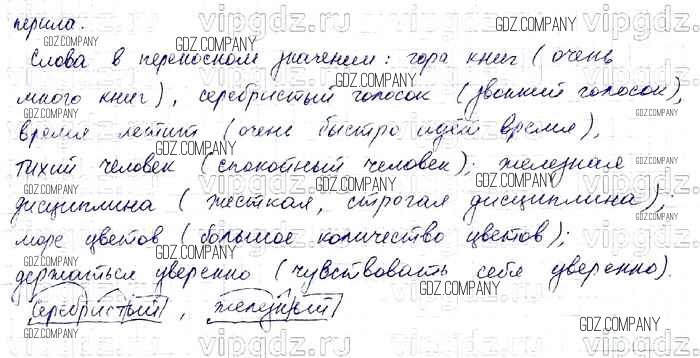 перила.
Слова в переносном значении: гора книг (очень
много книг), серебристый голосок (звонкий голосок),
время летит (очень быстро идёт время),
тихий человек (спокойный человек); железная
дисциплина (жесткая, строгая дисциплина);
море цветов (большое количество цветов);
держаться уверенно (чувствовать себя уверенно).
серебристый, железный